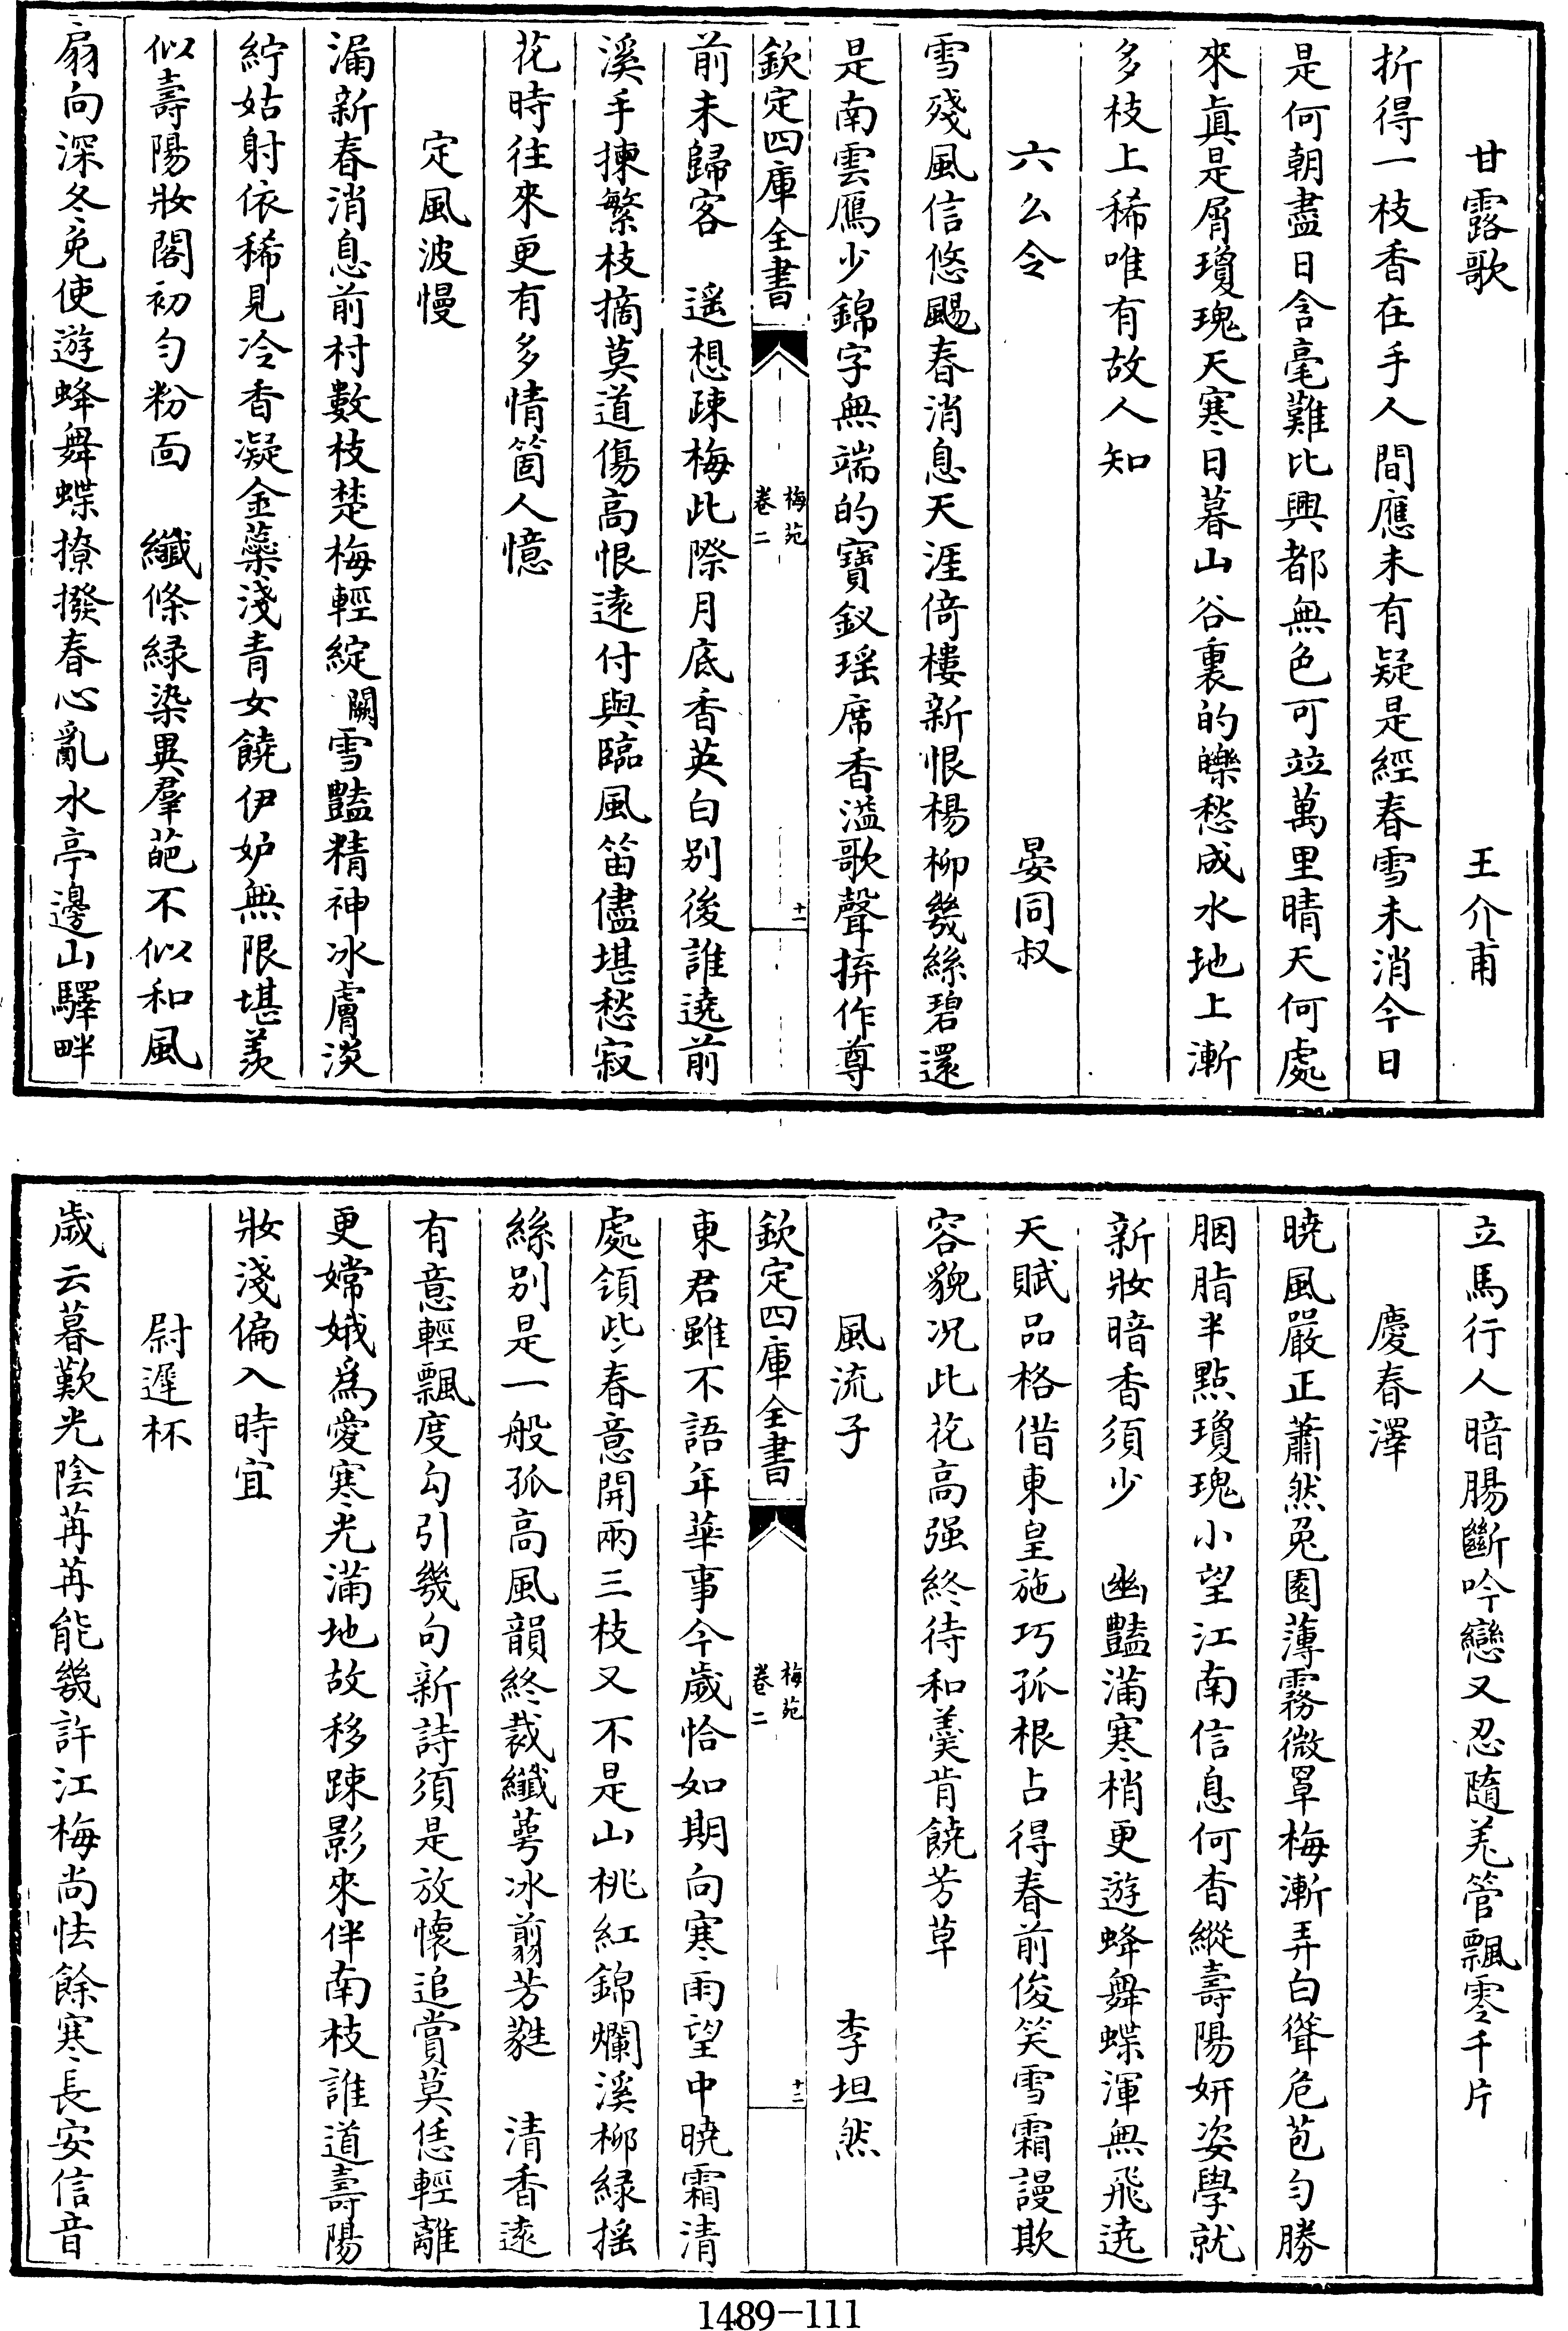 甘露歌　王介甫
折得一枝香在手人間應未有疑是經春雪未消今日
是何朝盡日含毫難比興都無色可竝萬里晴天何處
來眞是屑瓊瑰天寒日暮山谷裏的皪愁成水地上漸
多枝上稀唯有故人知
六么令　晏同叔
雪殘風信悠颺春消息天涯倚樓新恨楊柳幾絲碧還
是南雲鴈少錦字無端的寶釵瑤席香溢歌聲拚作尊
欽定四庫全書　梅苑卷二　十一
前未歸客　遥想疎梅此際月底香英白别後誰遶前
溪手揀繁枝摘莫道傷高恨遠付與臨風笛儘堪愁寂
花時往來更有多情箇人憶
定風波慢
漏新春消息前村數枝楚梅輕綻闕雪豔精神冰膚淡
紵姑射依稀見冷香凝金蘂淺青女饒伊妒無限堪羨
似壽陽妝閣初勻粉面　纖條緑染異羣葩不似和風
扇向深冬免使遊蜂舞蝶撩撥春心亂水亭邊山驛畔
立馬行人暗腸斷吟戀又忍隨羌管飄零千片
慶春澤
曉風嚴正蕭然兔園薄霧微罩梅漸弄白聳危苞勻勝
胭脂半點瓊瑰小望江南信息何杳縱壽陽妍姿學就
新妝暗香須少　幽豔滿寒梢更遊蜂舞蝶渾無飛遶
天賦品格借東皇施巧孤根占得春前俊笑雪霜謾欺
容貌况此花高强終待和羹肯饒芳草
風流子　李坦然
欽定四庫全書　梅苑卷二　十二
東君雖不語年華事今歲恰如期向寒雨望中曉霜清
處領些春意開兩三枝又不是山桃紅錦爛溪柳緑摇
絲别是一般孤高風韻終裁纖萼冰翦芳蕤　清香遠
有意輕飄度勾引幾句新詩須是放懷追賞莫恁輕離
更嫦娥爲愛寒光滿地故移疎影來伴南枝誰道壽陽
妝淺偏入時宜
尉遲杯
歲云暮歎光陰苒苒能幾許江梅尚怯餘寒長安信音
1489-111